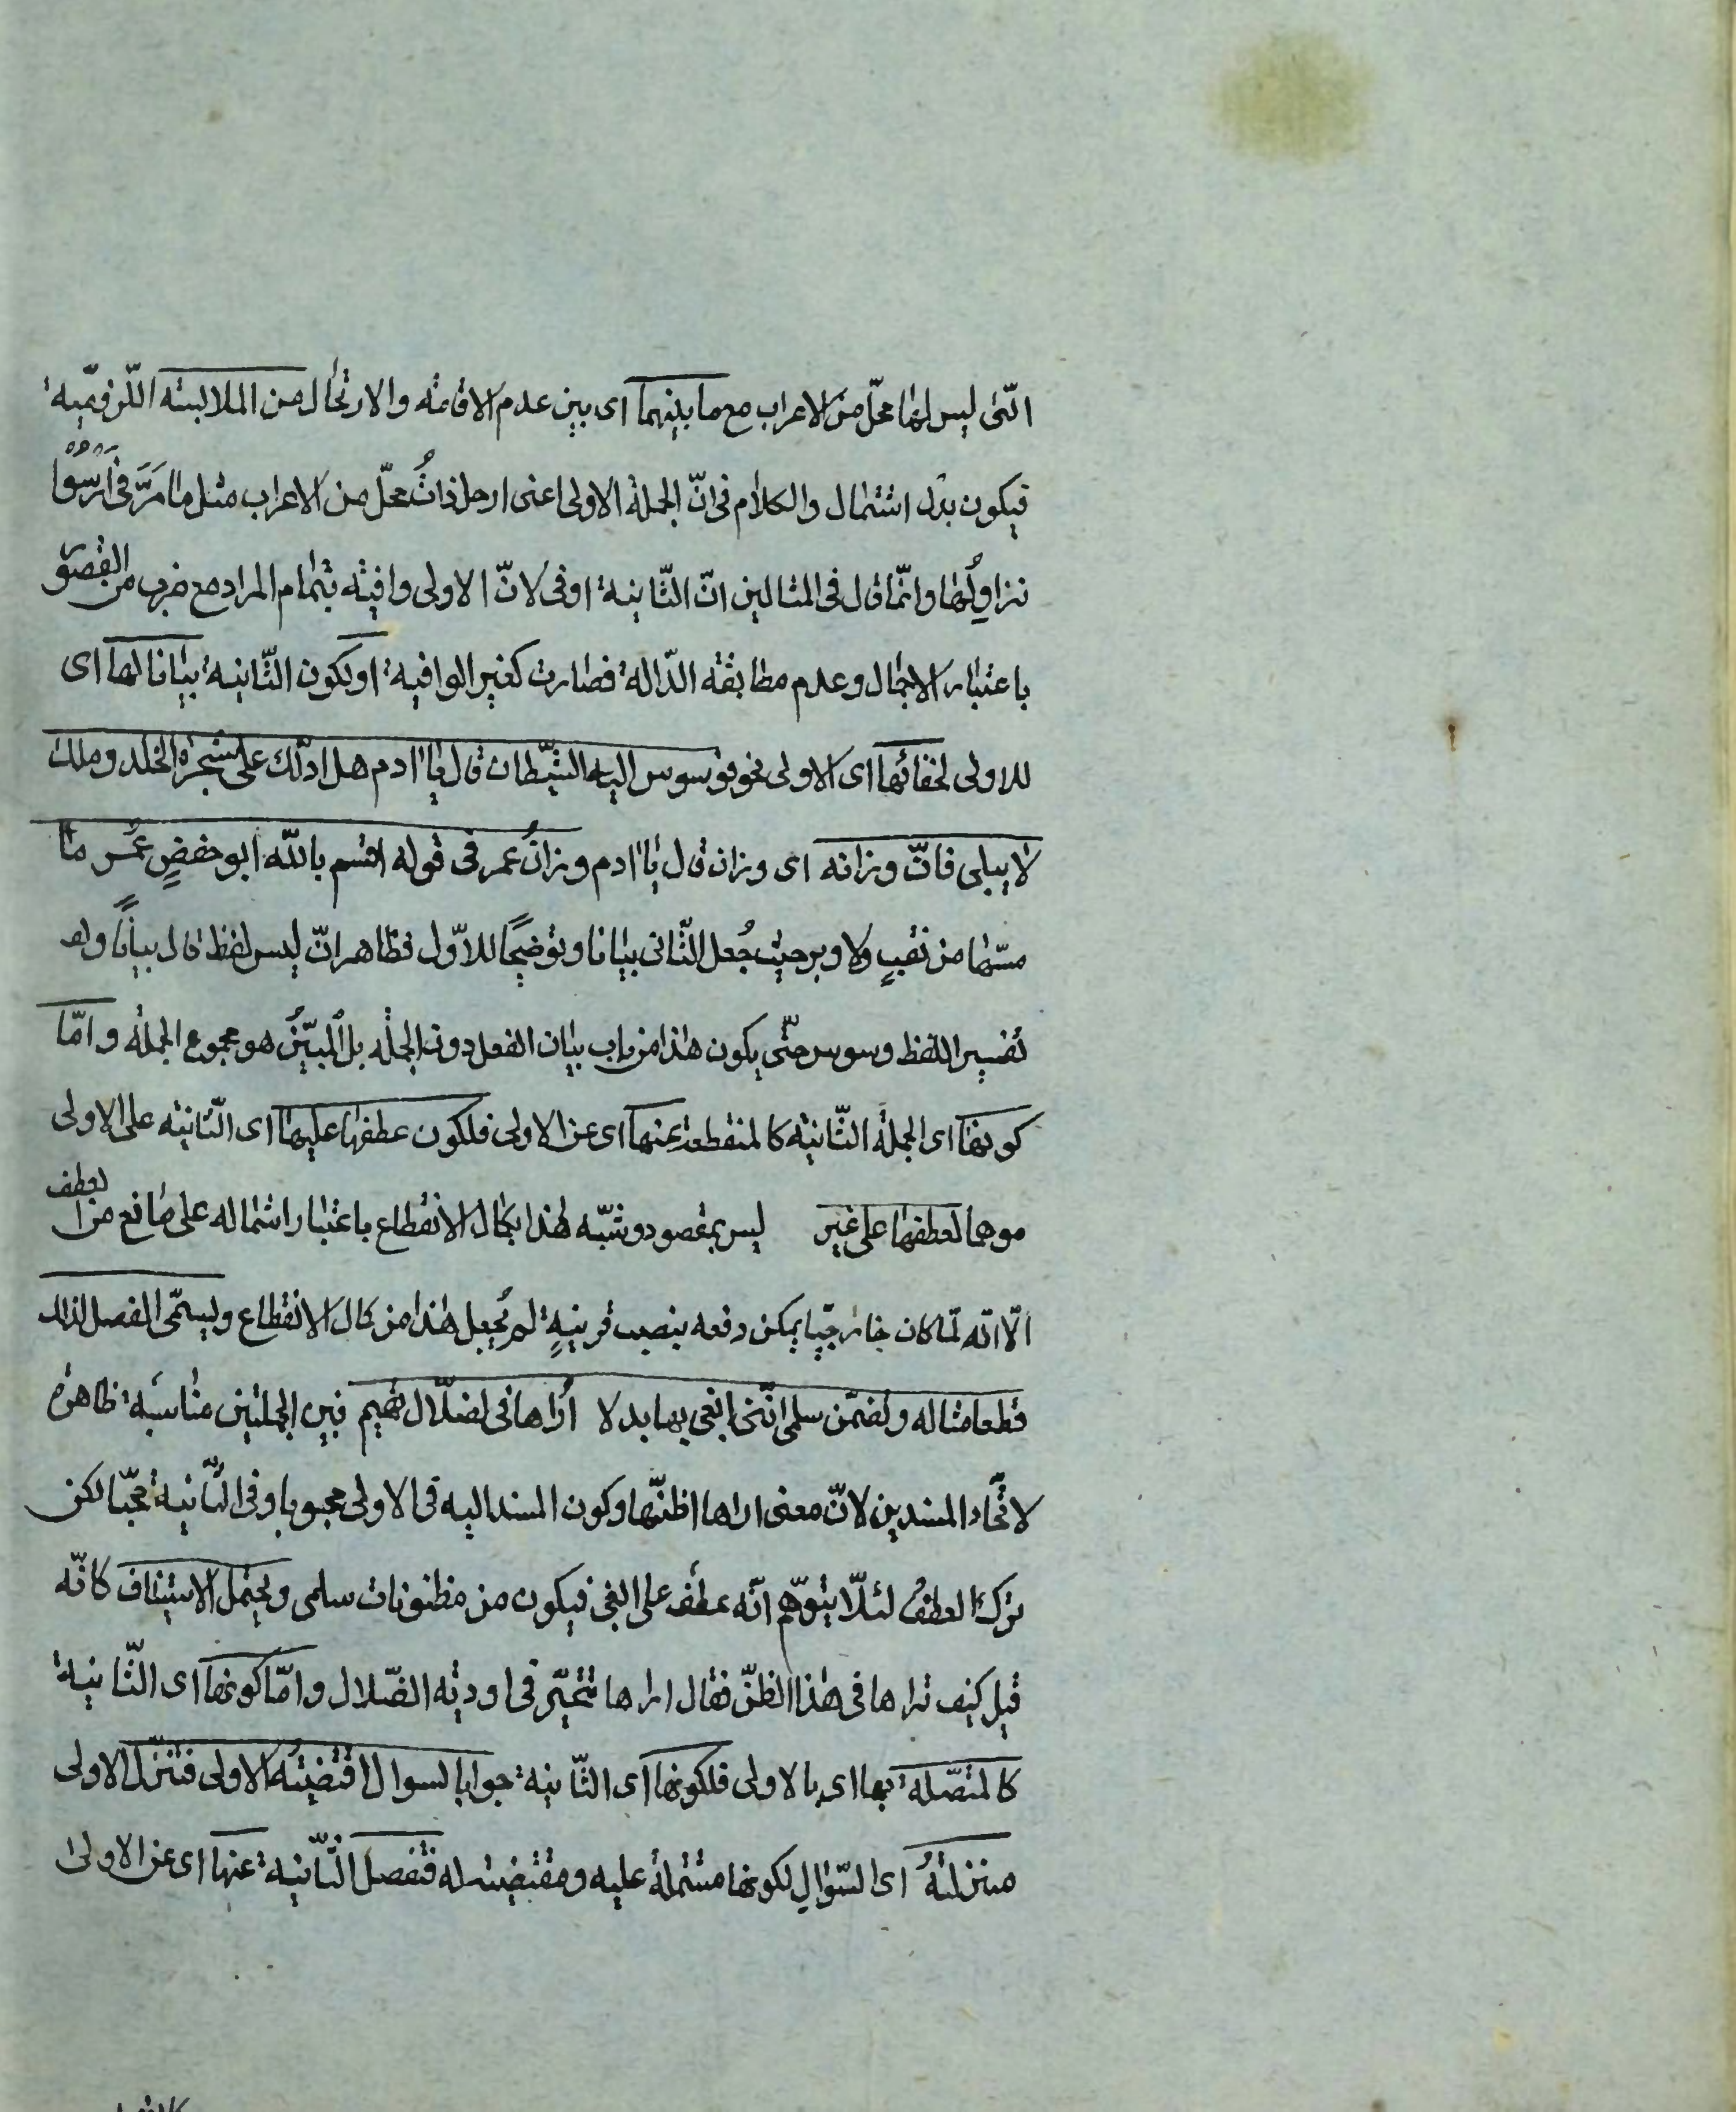 التى ليس لها محلّ من الاعراب مع ما بينهما اى بين عدم الاقامة والارتحال من الملابسة اللزوميّة
فيكون بدل اشتمال والكلام فى انّ الجملة الاولى اعنى ارحل ذاتُ محلّ من الاعراب مثل ما مَرَّ فى اَرْسُوْا
نزاوِلُها وانّما قال فى المثالين انّ الثّانية اوفى لانّ الاولى وافية بتمام المراد مع ضرب من القصور
باعتبار الاجمال وعدم مطابقة الدّالة فصارت كغير الوافية او يكون الثّانية بيانا لها اى
للاولى لخفائها اى الاولى نحو فوسوس اليه الشّيطان قال يا ادم هل ادلّك على شجرة الخلد وملك
لا يبلى فانّ وزانه اى وزان قال يا ادم وزانُ عمر فى قوله اقسم بالله ابو حفصٍ عُمَر ما
مسّها من نقبٍ ولا دبر حيث جُعل الثّانى بيانا وتوضيحًا للاوّل فظاهر انّ ليس لفظ قال بيانًا و
تفسيرا للفظ وسوس حتّى يكون هذا من باب بيان الفعل دون الجملة بل المبيَّنُ هو مجموع الجملة وامّا
كونها اى الجملة الثّانية كالمنقطعة عنها اى عن الاولى فلكون عطفها عليها اى الثّانية على الاولى
موهما لعطفها على غير ليس بمقصود وشبّه هذا بكمال الانقطاع باعتبار اشتماله على مانع من العطف
الّا انّه لمّا كان خارجيّا يمكن دفعه بنصب قرينةٍ لم يُجعل هذا من كمال الانقطاع ويسمّى الفصل لذلك
قطعا مثاله وتضمّن سلمى انّنى ابغى بها بدلا اُراها فى لضلّال تهيم فبين الجملتين مناسبة ظاهرة
لاتّحاد المسندين لانّ معنى اراها اظنّها وكون المسند اليه فى الاولى محبوبا وفى الثّانية محبّا لكن
ترك العطفُ لئلّا يتوهّم انّه عطف على ابغى فيكون من مظنونات سلمى ويحتمل الاستيناف كانّه
قيل كيف تراها فى هذا الظنّ فقال اراها تتحيّر فى اودية الضّلال وامّا كونها اى الثّانية
كالمتصّلة بها اى بالاولى فلكونها اى الثّانية جوابا لسوال اقتضيته الاولى فتنزّل الاولى
منزلتهُ اى السّوالِ لكونها مشتملة عليه ومقتضية له فتفصل الثّانية عنها اى عن الاولى